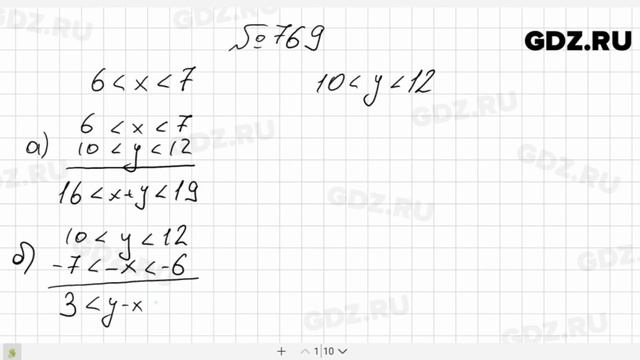 №769
GDZ.RU
6 < x < 7
10 < y < 12
а)
6 < x < 7
10 < y < 12
16 < x+y < 19
б)
10 < y < 12
-7 < -x < -6
3 < y-x
1 10